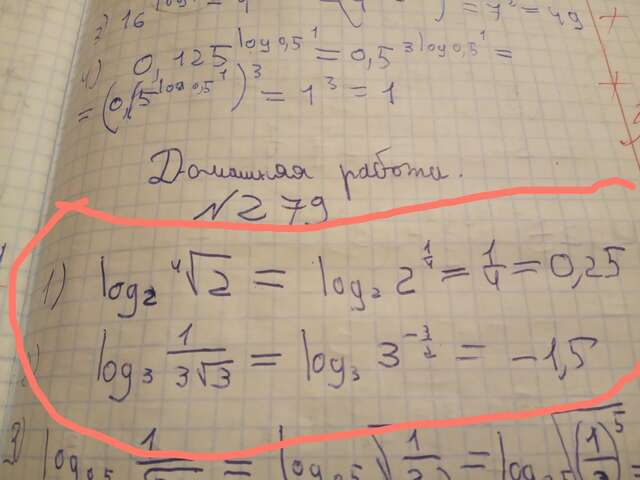 2) 16^log = 7² = 49
4) 0,125^log₀,₅1 = 0,5^3log₀,₅1 =
= (0,5^log₀,₅1)³ = 1³ = 1
Домашняя работа.
N279
1) log₂ ⁴√2 = log₂ 2^1/4 = 1/4 = 0,25
2) log₃ 1/3√3 = log₃ 3^-3/2 = -1,5
3) log₀,₅ 1/√ = log₀,₅ √1/ = log √(1/)⁵ =